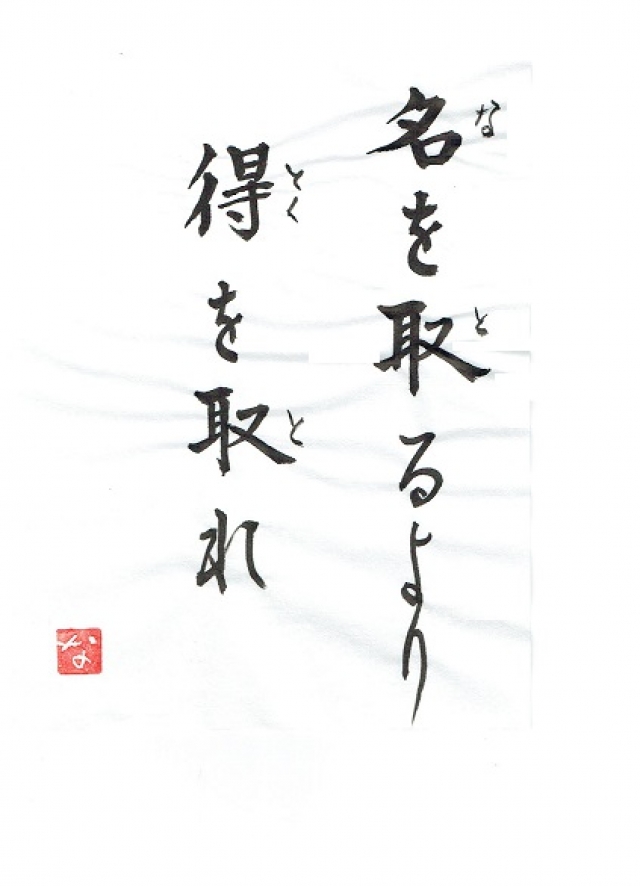 名を取るより
な
と
得を取れ
とく
と
な